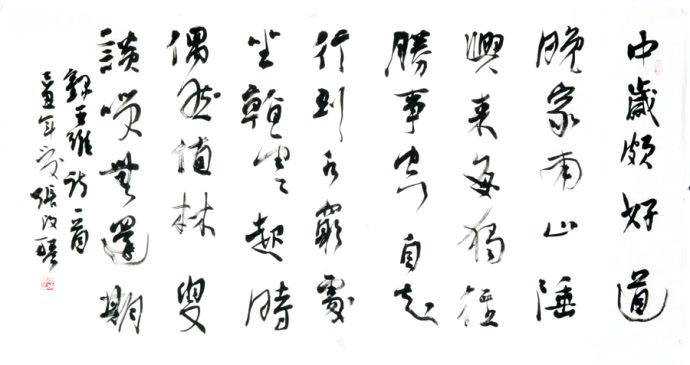 中歲頗好道
晚家南山陲
興来每獨往
勝事空自知
行到水窮處
坐看雲起時
偶然值林叟
談咲無還期
録王維詩一首
己丑年夏張改琴